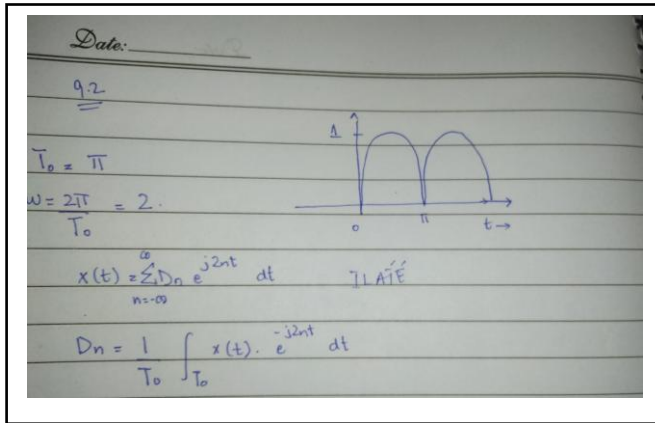 Date:
9.2
1
T₀ = π
ω = 2π/T₀ = 2.
0 π t→
x(t) = ∞ Σ n=-∞ Dn e^j2nt dt ILATE
Dn = 1/T₀ ∫T₀ x(t). e^-j2nt dt